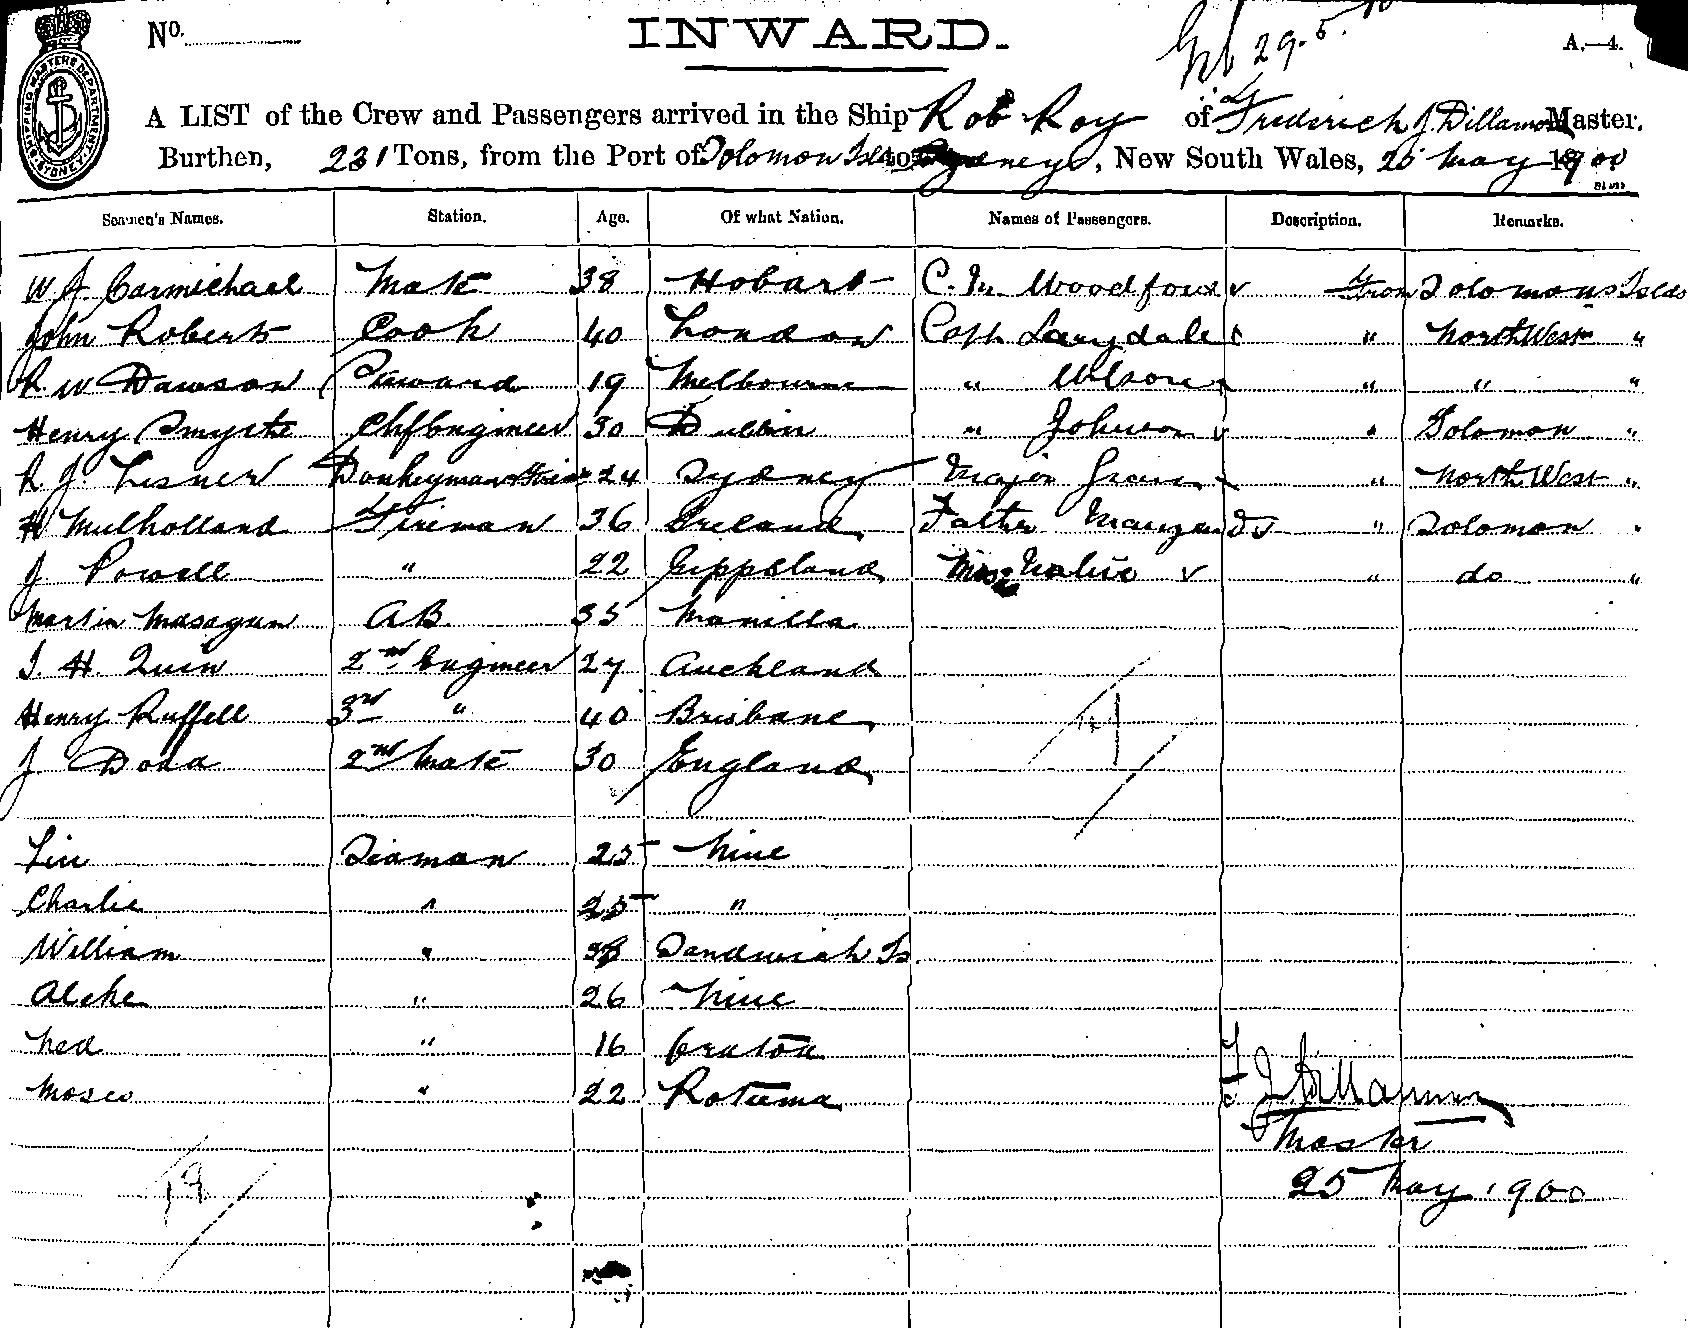 No.
INWARD.
29.5.
A.—4.
SHIPPING MASTERS DEPARTMENT SYDNEY
A LIST of the Crew and Passengers arrived in the Ship Rob Roy of Frederick J. Dillamore Master.
Burthen, 231 Tons, from the Port of Solomon Islds to Sydney, New South Wales, 25 May 1900
Seamen's Names. Station. Age. Of what Nation. Names of Passengers. Description. Remarks.
W J Carmichael Mate 38 Hobart C. M. Woodford from Solomons Islds
John Roberts Cook 40 London Capt Langdale " North West "
R W Dawson Steward 19 Melbourne " Wilson " " "
Henry Smythe Chf Engineer 30 Dublin " Johnson " Solomon "
R J. Lesner Donkeyman 24 Sydney Major " North West "
H Mulholland Fireman 36 Ireland Father " Solomon "
J Powell " 22 Gippsland Native " do "
Martin Masagun AB 35 Manilla
T. H. Quin 2nd Engineer 27 Auckland
Henry Ruffell 3rd " 40 Brisbane
J Dodd 2nd Mate 30 England
Seaman 25 Niue
Charlie " 25 "
William " 38 Sandwich Is
Aleke " 26 Niue
Ned " 16
Moses " 22 Rotuma
F J Dillamore
Master
25 May 1900